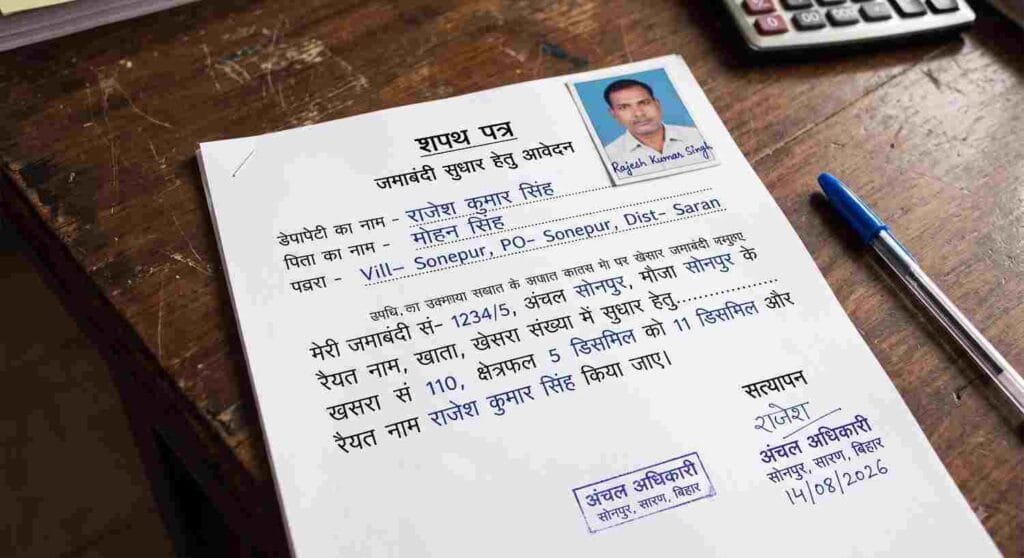 शपथ पत्र
जमाबंदी सुधार हेतु आवेदन
Rajesh Kumar Singh
डेपापेटी का नाम - राजेश कुमार सिंह
पिता का नाम - मोहन सिंह
पवरा - Vill- Sonepur, PO- Sonepur, Dist- Saran
उपधि, का उक्माया सखात के अपात कातस भो पर खेसार जमाबंदी
मेरी जमाबंदी सं- 1234/5, अंचल सोनपुर, मौजा सोनपुर के
रैयत नाम, खाता, खेसरा संख्या में सुधार हेतु..................
खसरा सं 110, क्षेत्रफल 5 डिसमिल को 11 डिसमिल और
रैयत नाम राजेश कुमार सिंह किया जाए।
सत्यापन
राजेश
अंचल अधिकारी
सोनपुर, सारण, बिहार
14/08/2026
अंचल अधिकारी
सोनपुर, सारण, बिहार